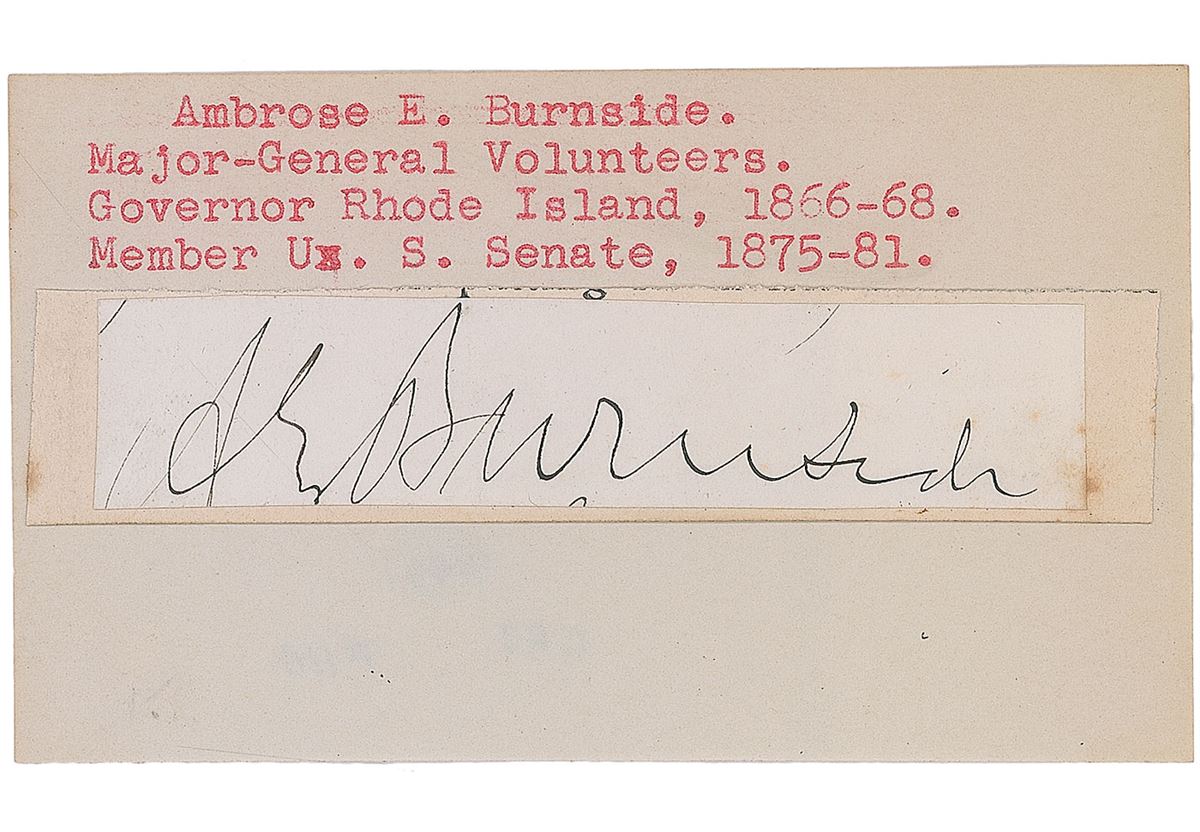 Ambrose E. Burnside.
Major-General Volunteers.
Governor Rhode Island, 1866-68.
Member Ux. S. Senate, 1875-81.
A E Burnside